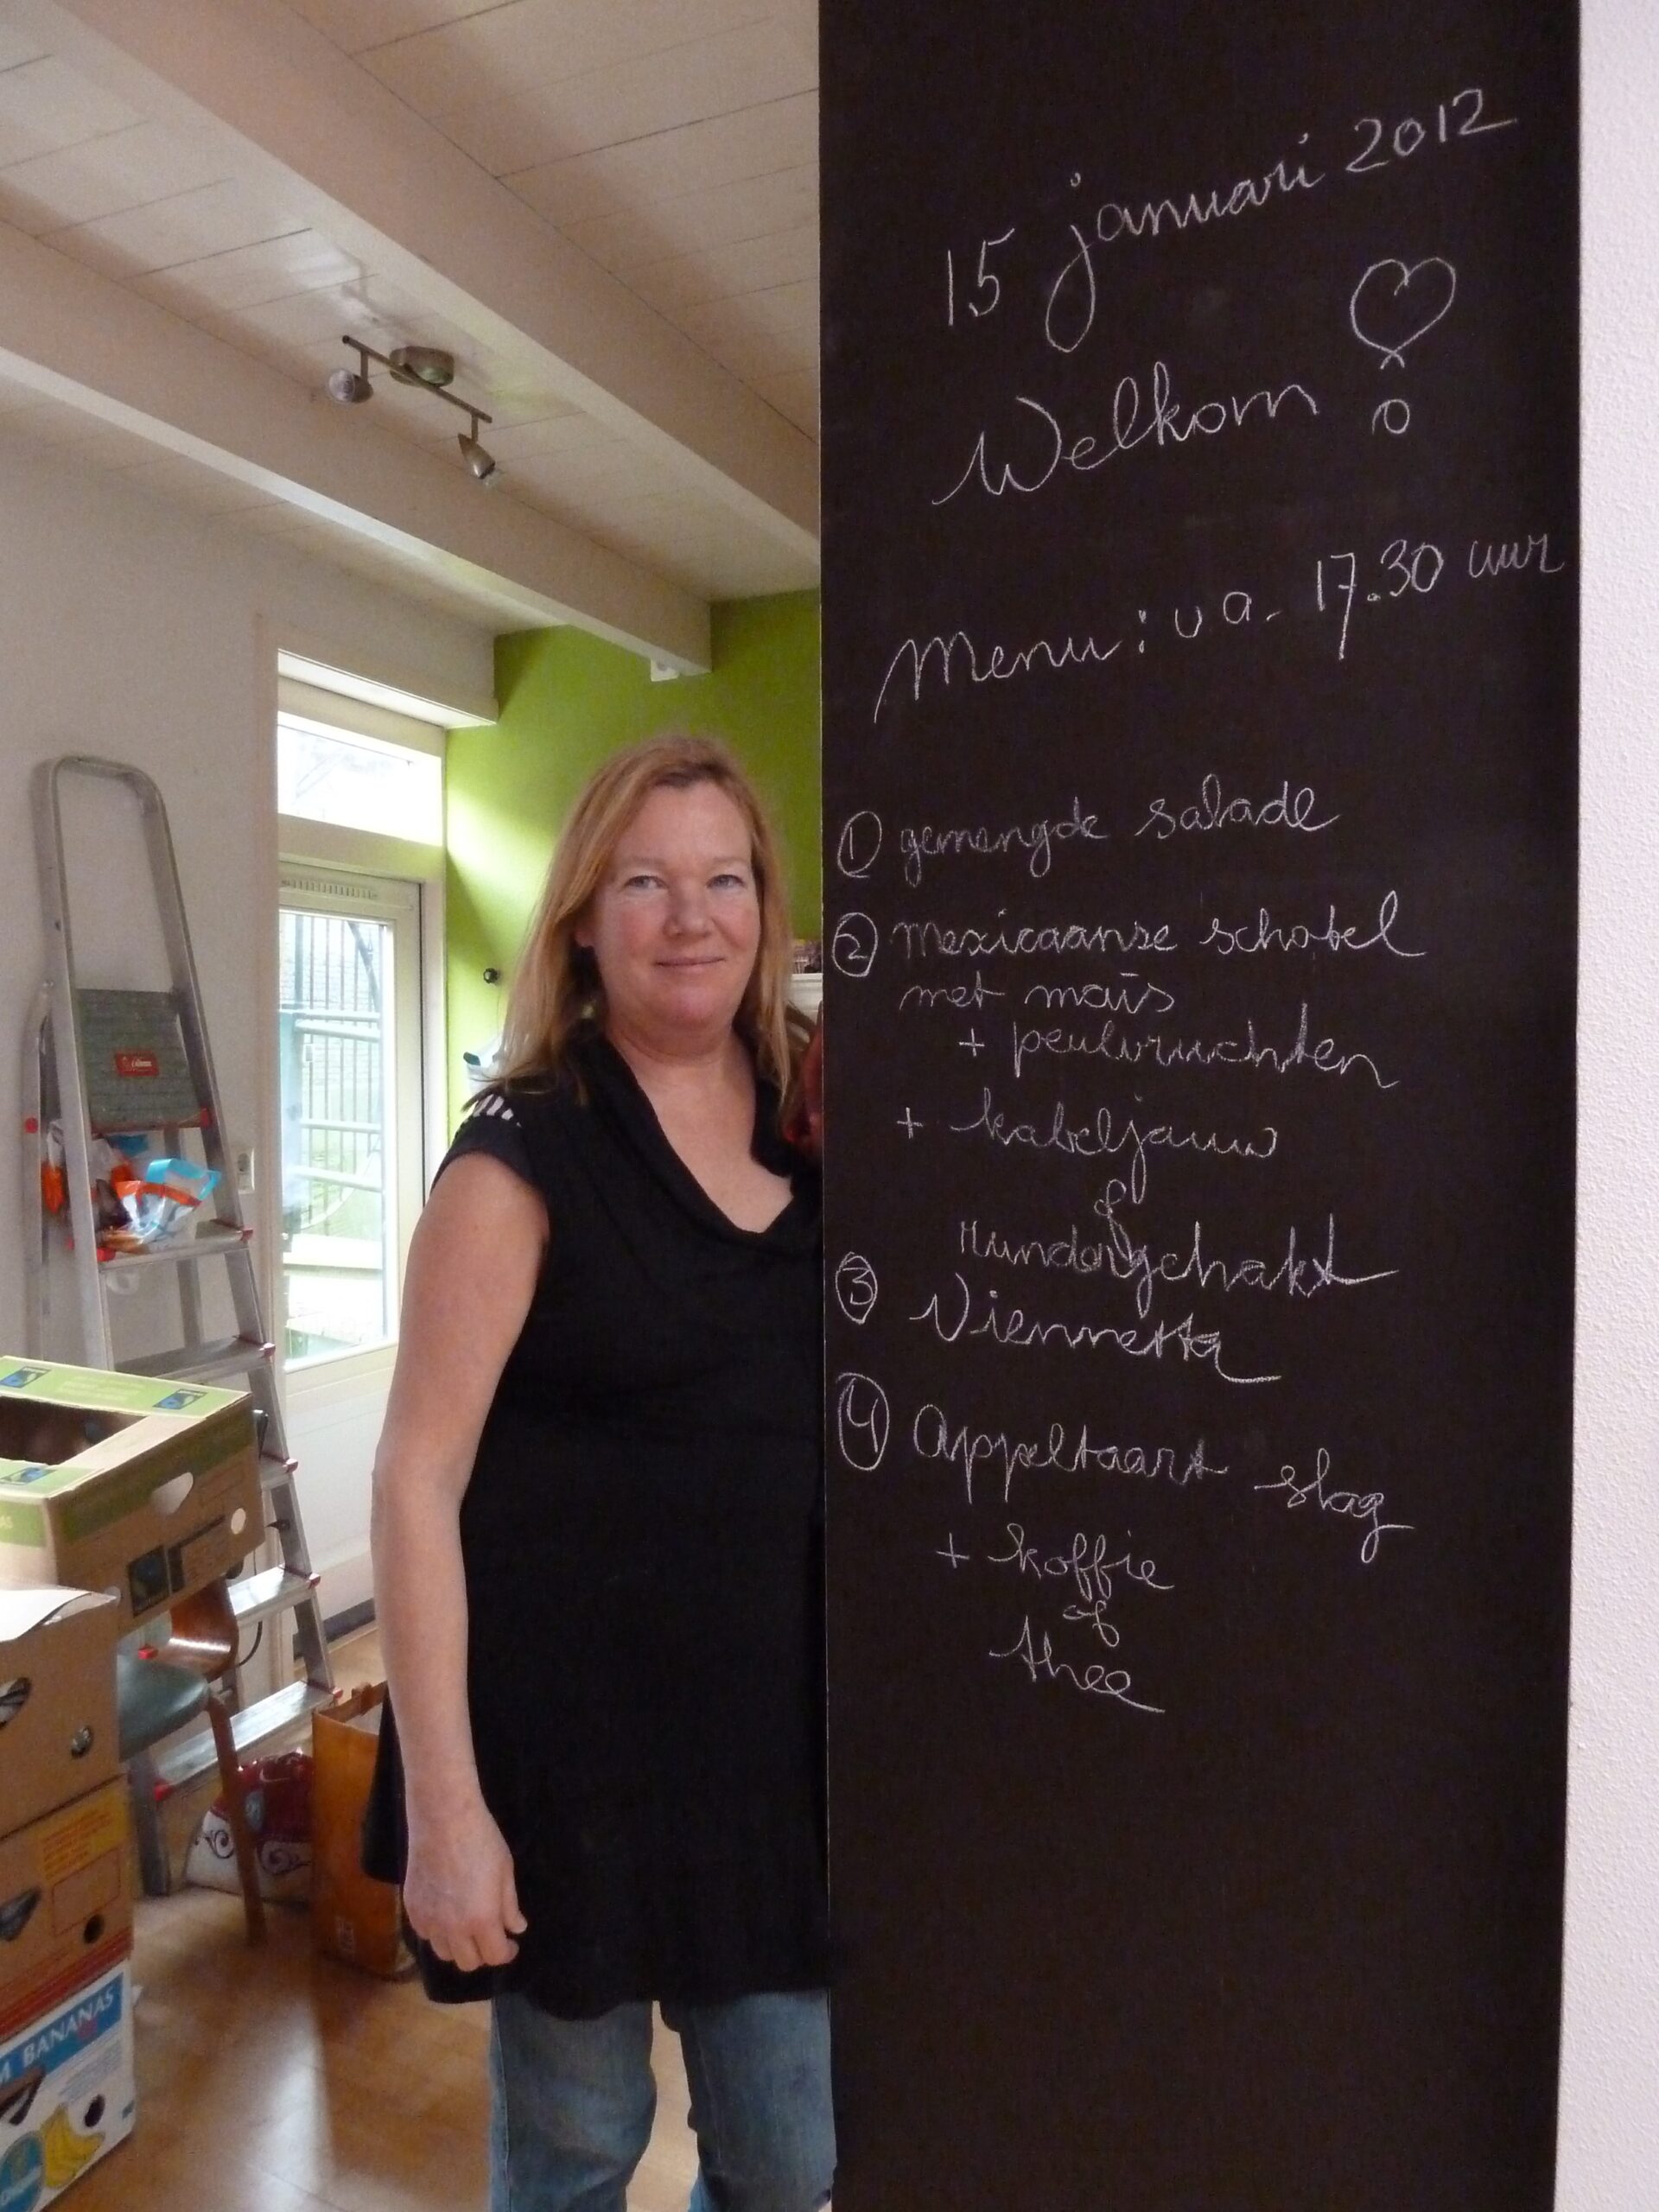 15 januari 2012
Welkom
Menu: va. 17.30 uur
① gemengde salade
② Mexicaanse schotel
met maïs
+ peulvruchten
+ kabeljauw
of
rundergehakt
③ Viennetta
④ Appeltaart slag
+ koffie
of
thee
BANANAS